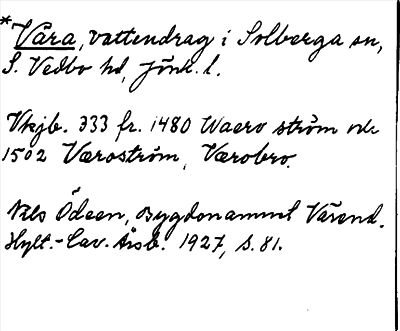 *Våra, vattendrag i Solberga sn,
S. Vedbo hd, Jönk. l.
Vkjb. 333 fr. 1480 Waero ström och
1502 Væroström, Værobro.
Nils Ödeen, Bygdonamnet Värend.
Hylt.-Cav. Årsb. 1927, s. 81.